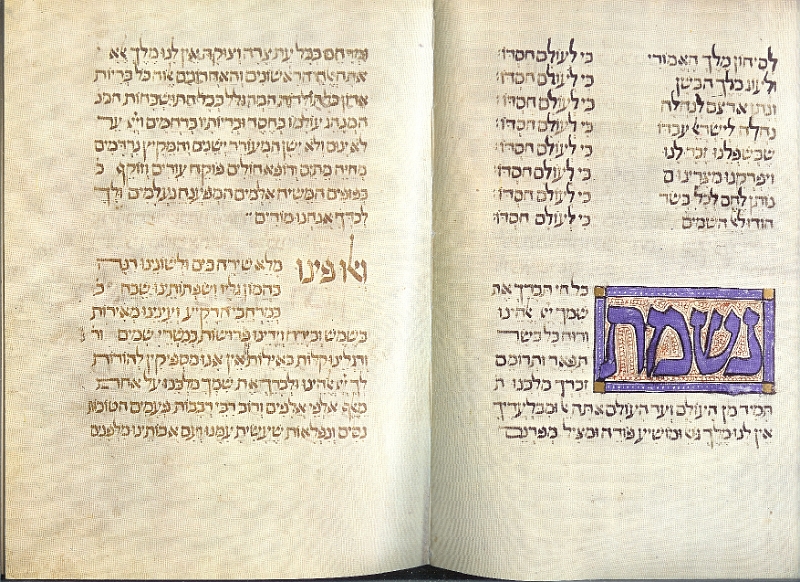 לסיחון מלך האמורי כי לעולם חסדו:
ולעוג מלך הבשן כי לעולם חסדו:
ונתן ארצם לנחלה כי לעולם חסדו:
נחלה לישראל עבדו כי לעולם חסדו:
שבשפלנו זכר לנו כי לעולם חסדו:
ויפרקנו מצרינו כי לעולם חסדו:
נותן לחם לכל בשר כי לעולם חסדו:
הודו לאל השמים כי לעולם חסדו:
נשמת
כל חי תברך את
שמך יי אלהינו
ורוח כל בשר
תפאר ותרומם
זכרך מלכנו ת
תמיד מן העולם ועד העולם אתה אל ומבלעדיך
אין לנו מלך גואל ומושיע פודה ומציל מפרנס
ומרחם בכל עת צרה וצוקה אין לנו מלך אלא
אתה אלהי הראשונים והאחרונים אלוה כל בריות
אדון כל תולדות המהולל בכל התושבחות המנ
המנהג עולמו בחסד ובריותיו ברחמים ויי ער
לא ינום ולא ישן המעורר ישנים והמקיץ נרדמים
מחיה מתים ורופא חולים פוקח עורים וזוקף כ
כפופים המשיח אלמים המפענח נעלמים ולך
לבדך אנחנו מודים
ואלו פינו מלא שירה כים ולשונינו רנה
כהמון גליו ושפתותינו שבח כ
כמרחבי הרקיע ועינינו מאירות
כשמש וכירח וידינו פרושות כנשרי שמים ור
ורגלינו קלות כאילות אין אנו מספיקין להודות
לך יי אלהינו ולברך את שמך מלכנו על אחת
מאלף אלפי אלפים ורוב רבי רבבות פעמים הטובות
נסים ונפלאות שעשית עמנו ועם אבותינו מלפנים